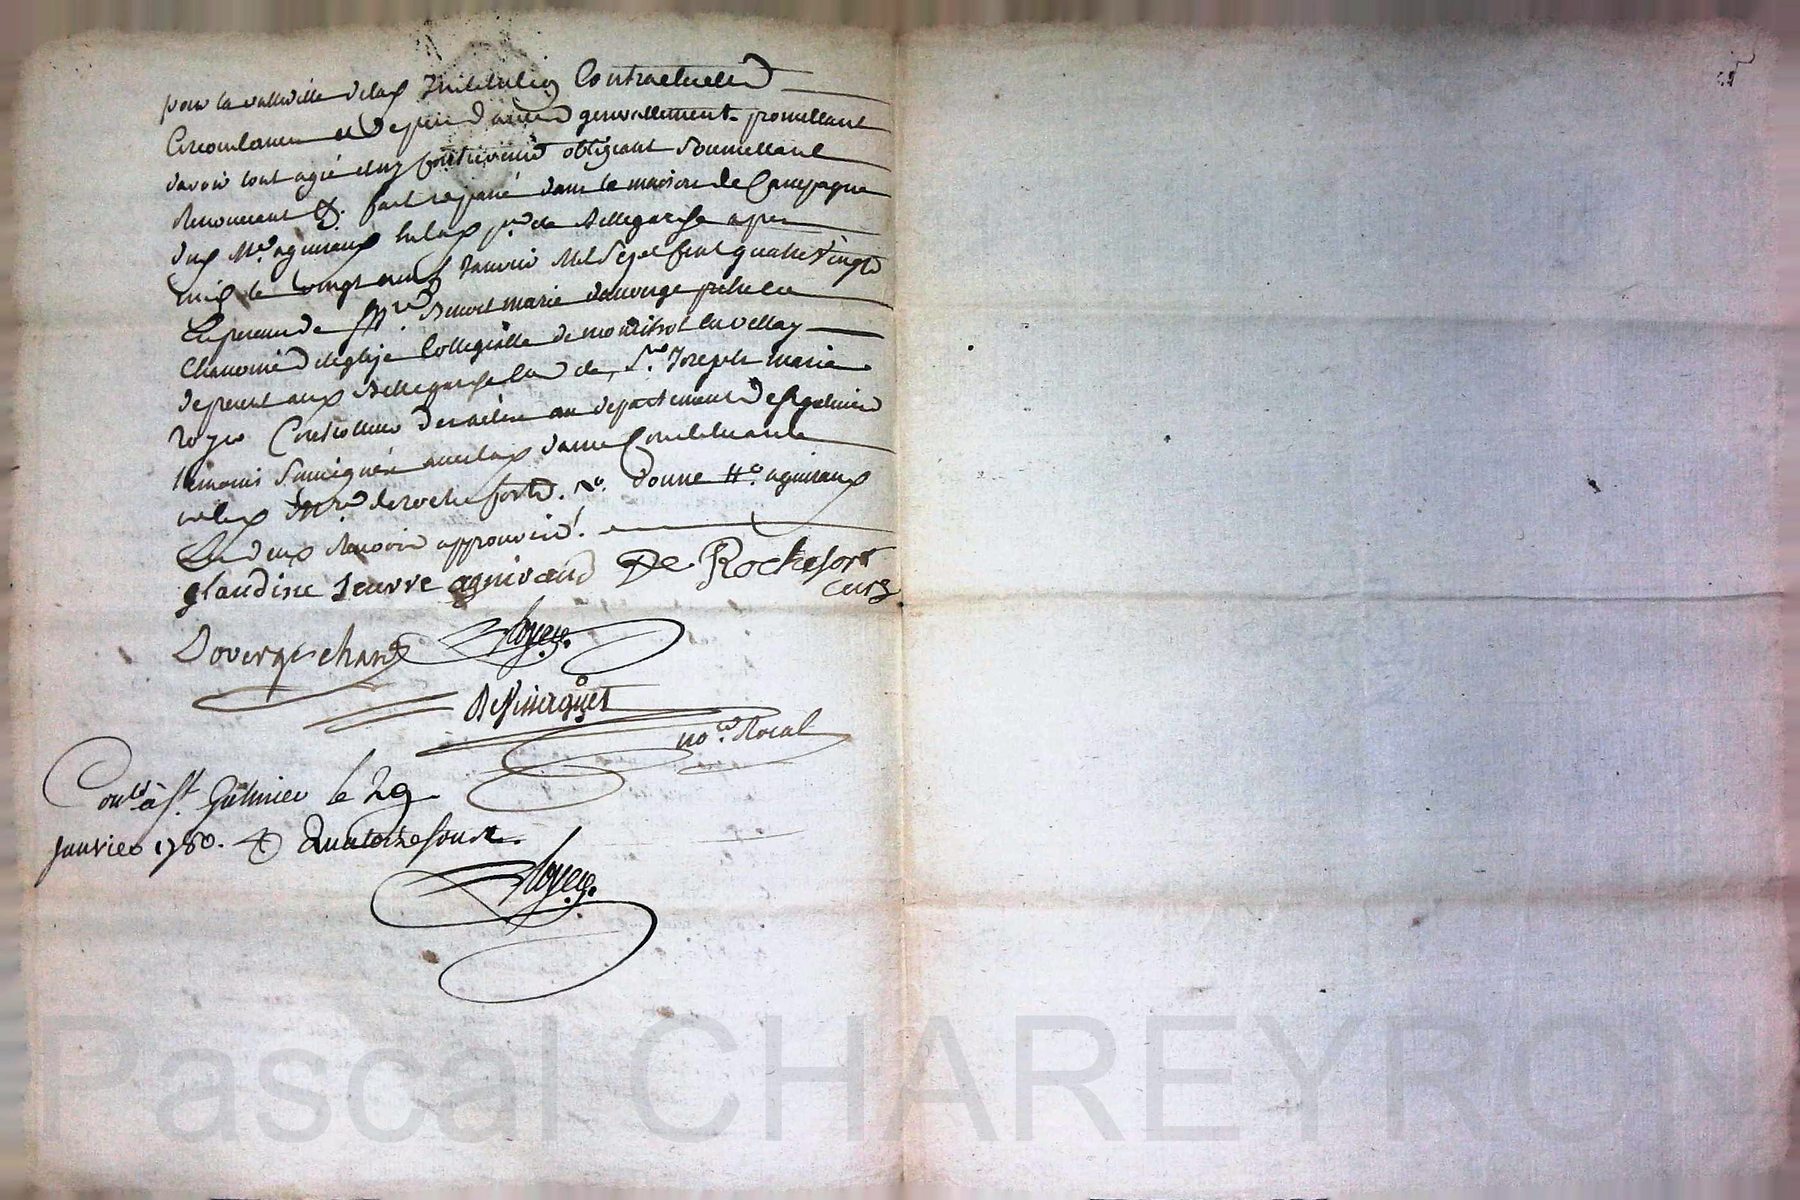 pour la validité de lad Institution Contractuelle
Circonstances et Dependances generallement promettant
d'avoir tout agré et ny contrevenir obligeant Soumettant
Renonceant &. fait et passé dans la maison de Campagne
dud Mr. agniraud en lad pse. de Bellegarde apres
midy le vingt neuf Janvier Mil Sept Cent quatre vingt
En presence de Mre. Benoit marie dauverge prêtre
Chanoine de leglise Collegialle de monistrol en vellay
de present aud Bellegarde et de Sr. Joseph marie
royer Controlleur des actes au departement de St galmier
témoins Soussignés avec lad dame Constituante
et led Mre. de rochefort. no. donne Me. agniraud
Les deux Renvois approuvés.
Claudine Jeuvre agniraud De Rochefort
curé
Dovergechan Royer.
no.re Roial
Contlé. à St. Galmier le 29
Janvier 1780. & Quatorze sous
Royer.
Pascal CHAREYRON